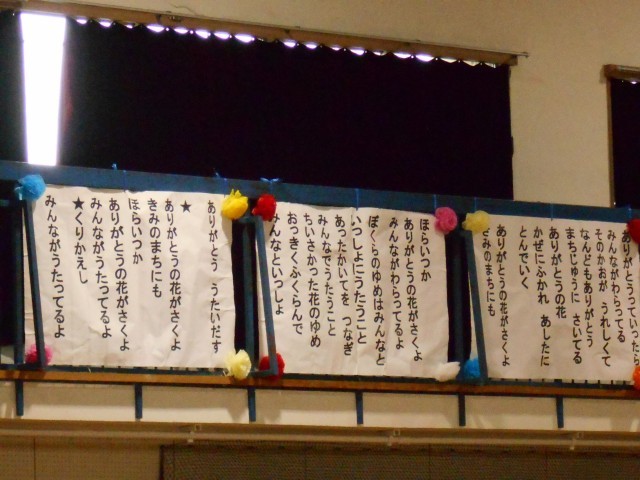 ありがとうっていったら
みんながわらってる
そのかおが うれしくて
なんどもありがとう
まちじゅうに さいてる
ありがとうの花
かぜにふかれ あしたに
とんでいく
ありがとうの花がさくよ
きみのまちにも
ほらいつか
ありがとうの花がさくよ
みんながわらってるよ
ぼくらのゆめはみんなと
いっしょにうたうこと
あったかいてを つなぎ
みんなでうたうこと
ちいさかった花のゆめ
おっきくふくらんで
みんなといっしょ
ありがとう うたいだす
★
ありがとうの花がさくよ
きみのまちにも
ほらいつか
ありがとうの花がさくよ
みんながうたってるよ
★くりかえし
みんながうたってるよ